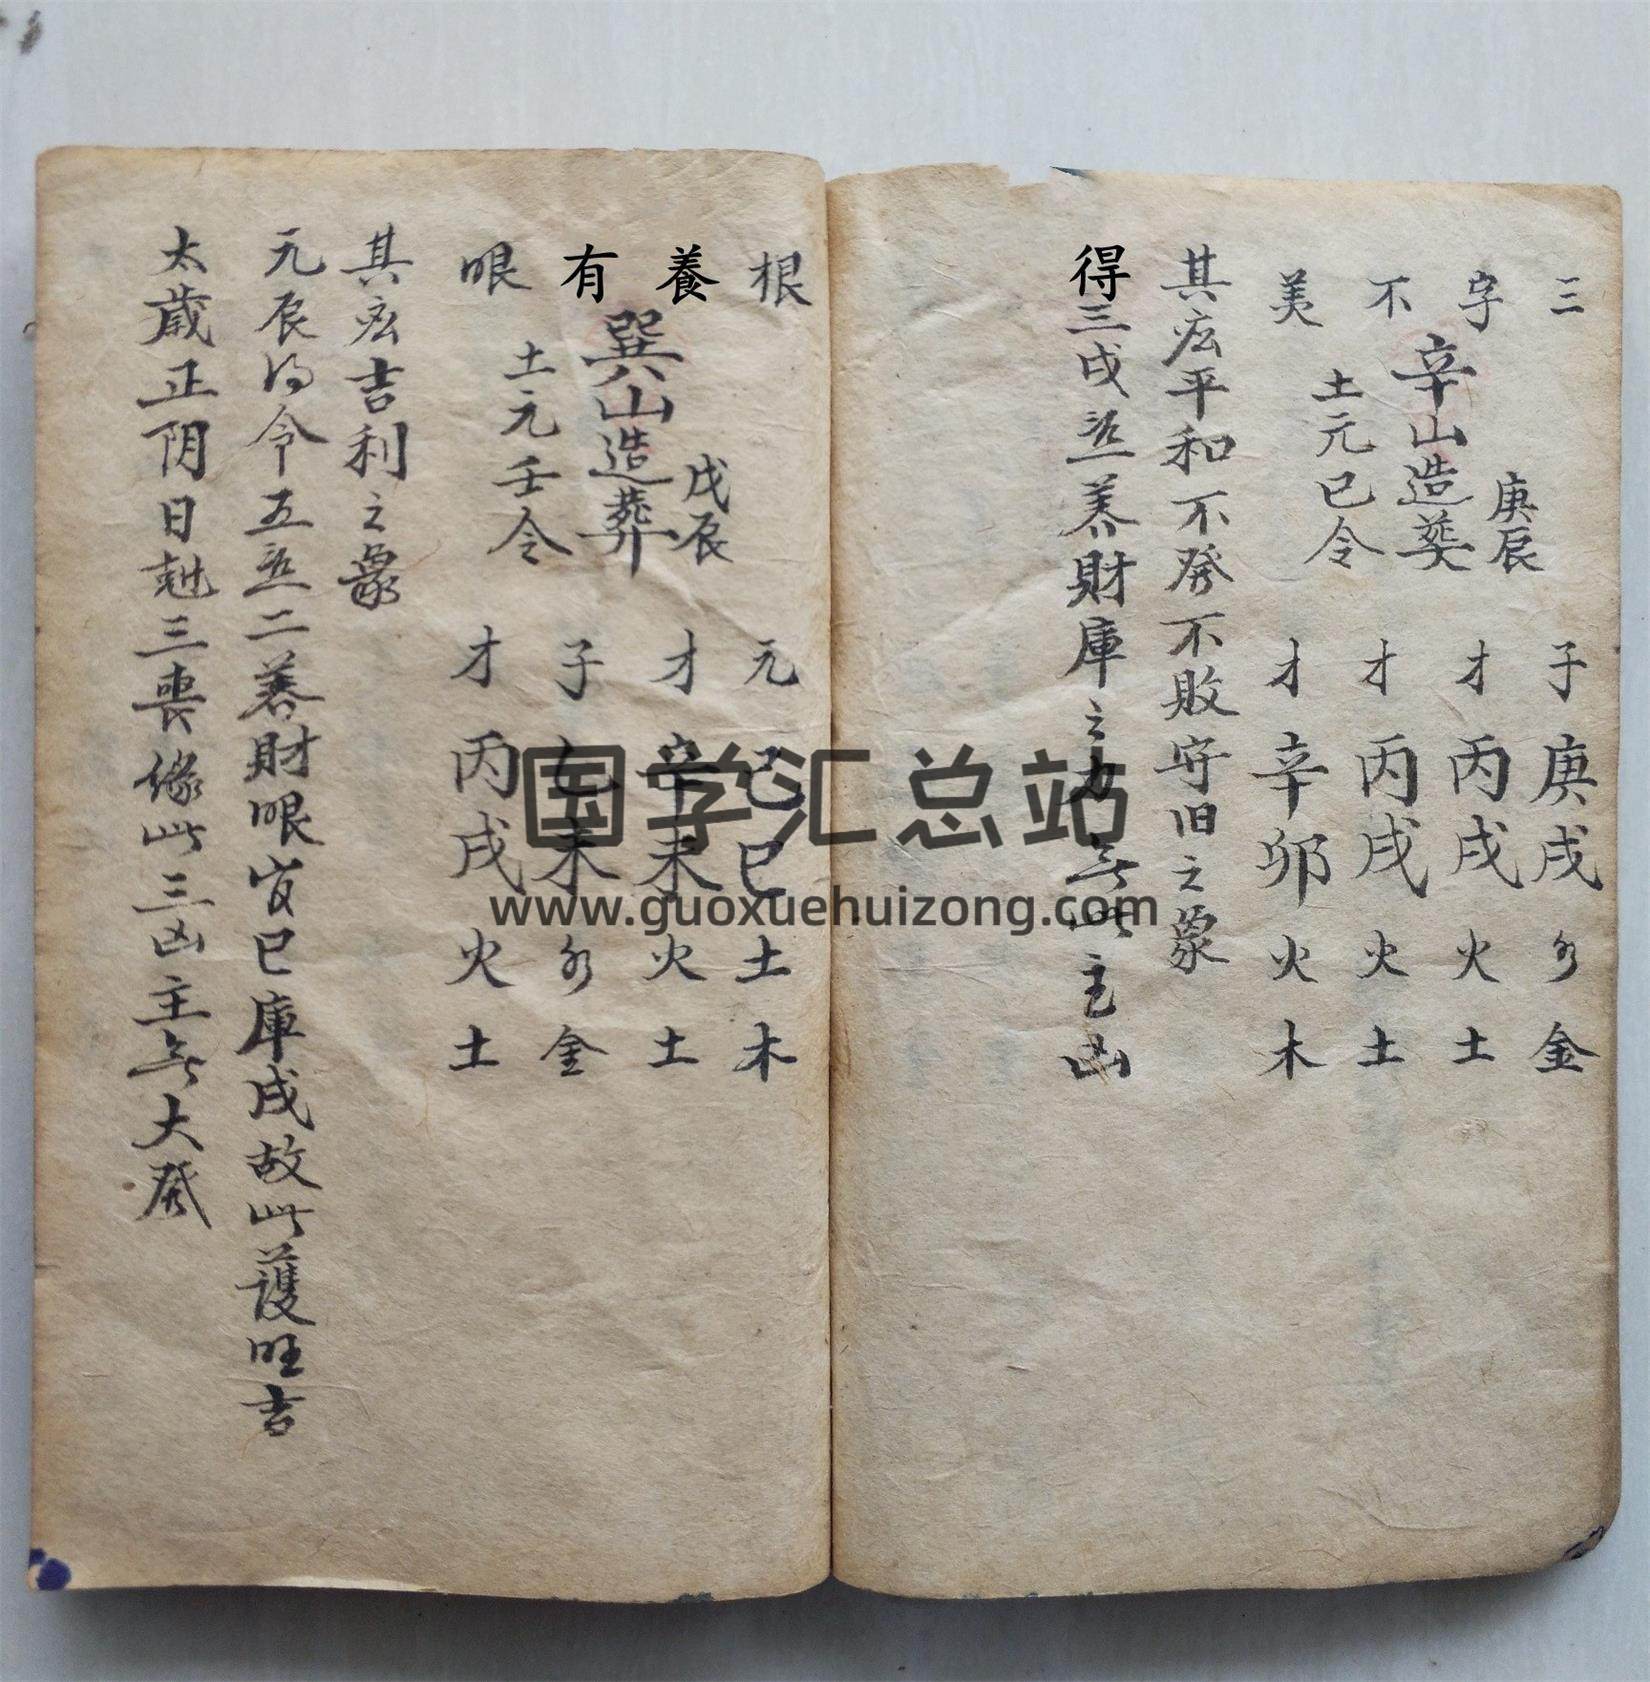 三 子 庚戌 水 金
庚辰
字 才 丙戌 火 土
辛山造葬
不 才 丙戌 火 土
土元已令
美 才 辛卯 火 木
其应平和不発不敗守旧之象
得三戌 养財庫之力 此主凶
根 元 己巳 土 木
戊辰
養 才 辛未 火 土
巽山造葬
有 子 乙未 水 金
土元壬令
眼 才 丙戌 火 土
其应吉利之象
元辰得令五 二养財眼 巳庫戌故此護旺吉
太歲正阴日尅三喪缘此三凶主无大発
国学汇总站
www.guoxuehuizong.com